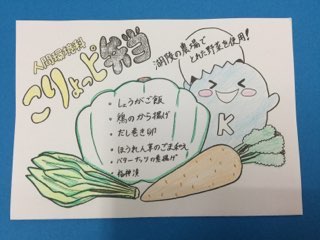 人間環境科
こりょっピ弁当
湖陵の農場で
とれた野菜を使用!
・しょうがご飯
・鶏のから揚げ
・だし巻き卵
・ほうれん草のごま和え
・バターナッツの素揚げ
・福神漬
K